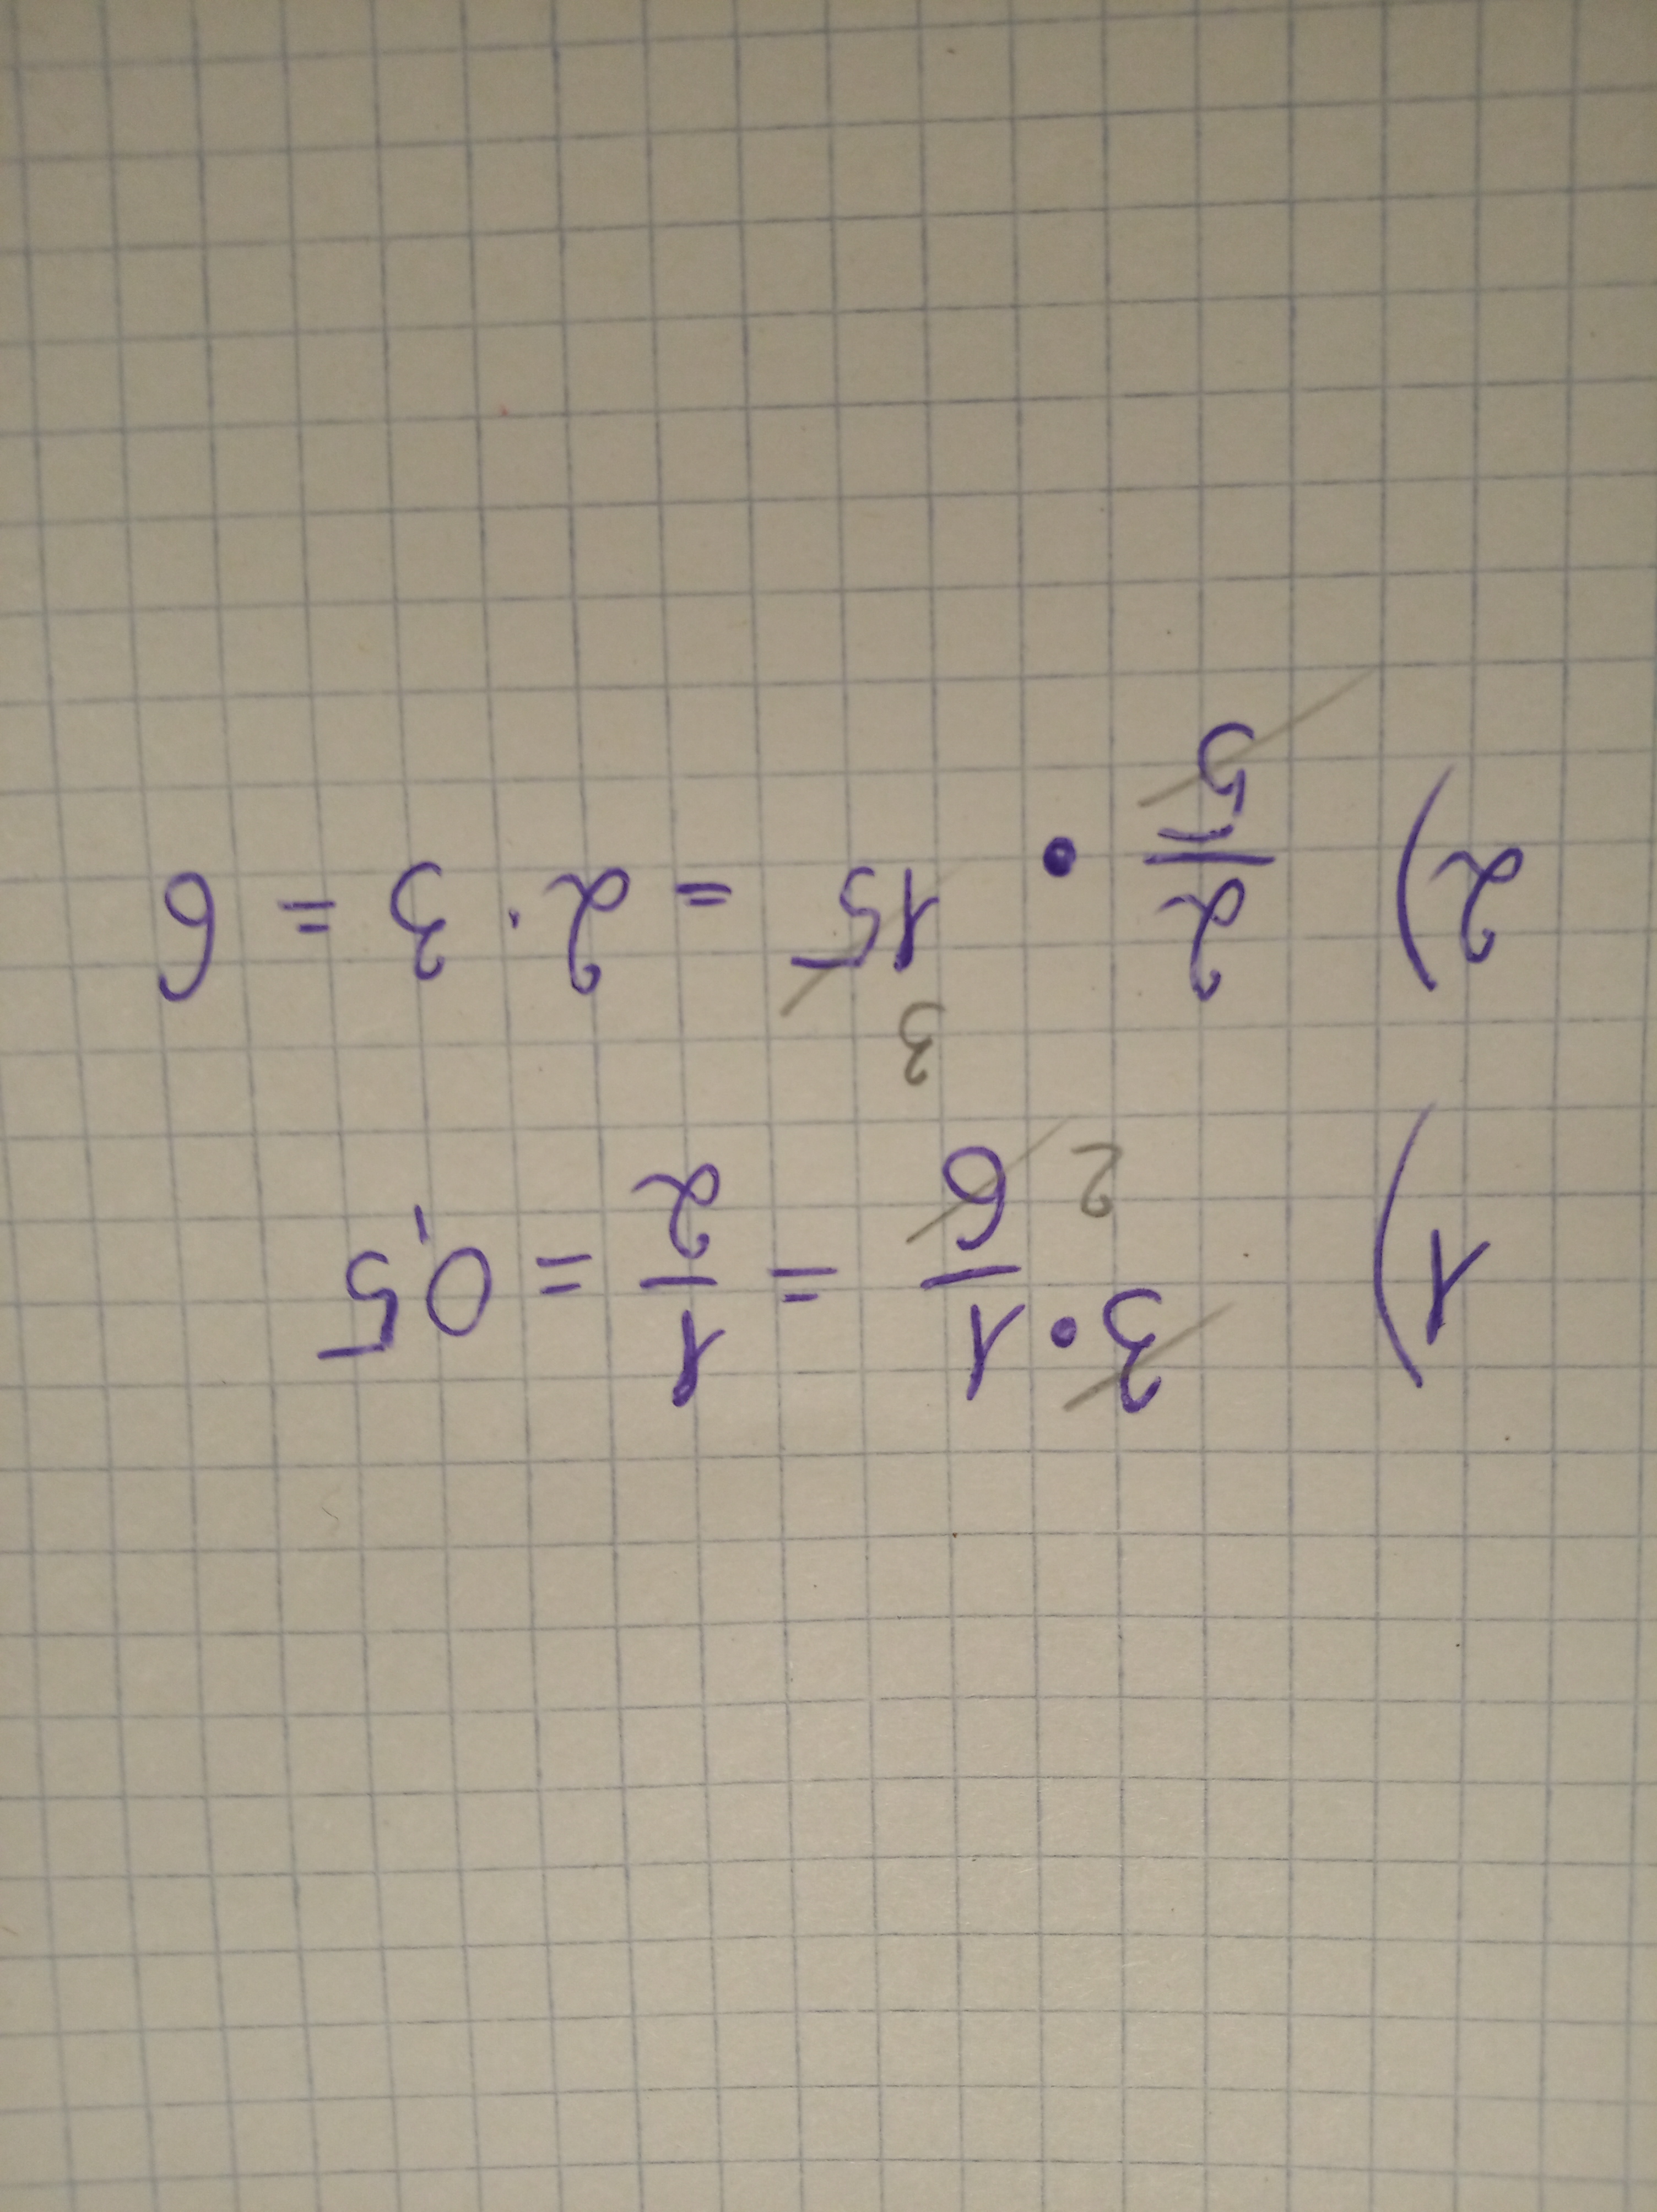 1) 3 · 1/6 2 = 1/2 = 0,5
3
2) 2/5 · 15 = 2 · 3 = 6